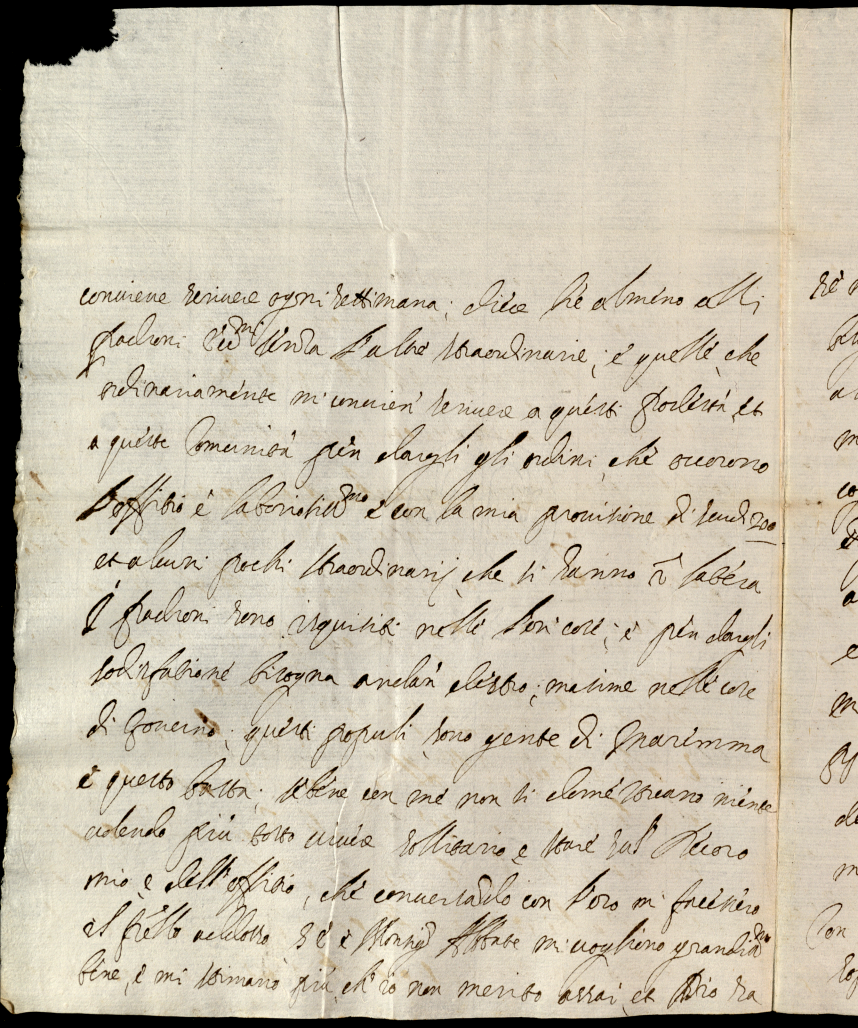 conviene scrivere ogni settimana; dieci se almeno alli
Padroni senza l'altre straordinarie; e quelle che
ordinariamente mi convien scrivere a questi Podestà, et
a queste Comunità per dargli gli ordini, che occorono
l'offitio è laboriosiss.mo e con la mia provisione di scudi 200
et alcuni pochi straordinarij che si fanno
I Padroni sono isquisiti nelle lor cose; e per dargli
sodisfatione bisogna andar destro; masime nelle cose
di Governo; questi populi sono gente di Maremma
e questo basta; sebene con me non si domesticano niente
volendo più tosto vivere sollitario e stare sul decoro
mio, e dell'offitio, che conversando con loro mi facessero
il fratello adosso se e Monsig.r Abbate mi vogliono grandiss.mo
bene, e mi stimano più ch'io non merito assai, et Dio sa